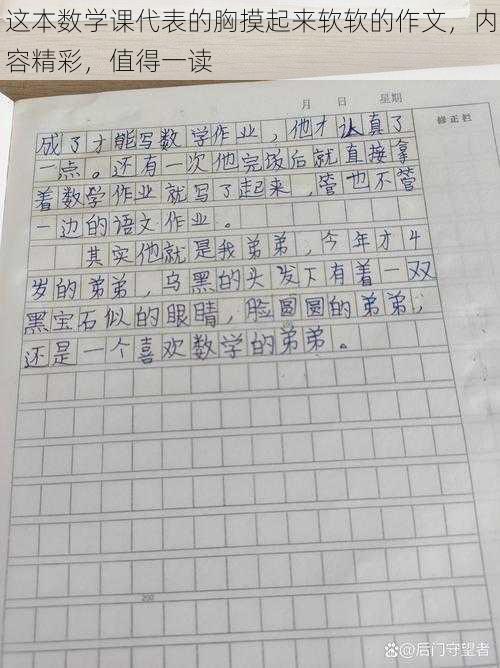 这本数学课代表的胸摸起来软软的作文，内
容精彩，值得一读
月 日 星期
修正栏
成了才能写数学作业，他才认真了
一点。还有一次他完成后就直接拿
着数学作业就写了起来，管也不管
一边的语文作业。
其实他就是我弟弟，今年才4
岁的弟弟，乌黑的头发下有着一双
黑宝石似的眼睛，脸圆圆的弟弟，
还是一个喜欢数学的弟弟。
200
@后门守望者